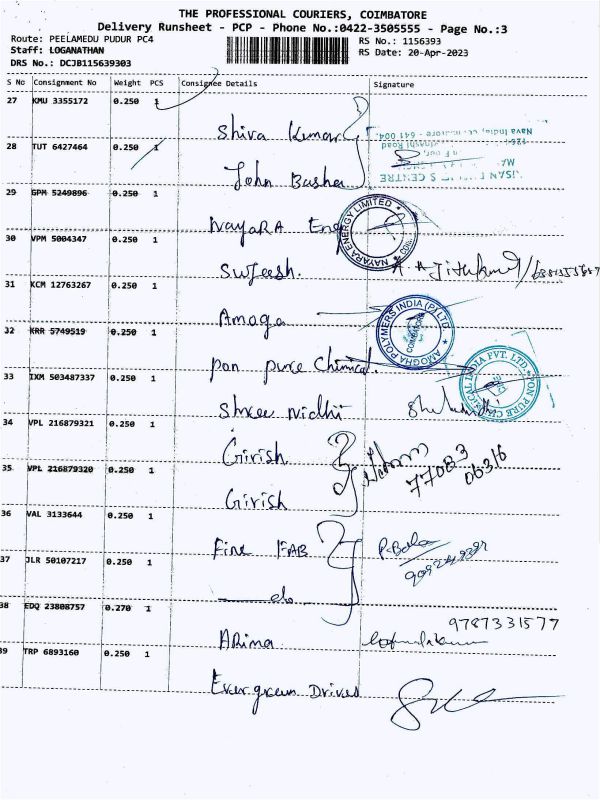 THE PROFESSIONAL COURIERS, COIMBATORE
Delivery Runsheet - PCP - Phone No.:0422-3505555 - Page No.:3
Route: PEELAMEDU PUDUR PC4
RS No.: 1156393
Staff: LOGANATHAN
RS Date: 20-Apr-2023
DRS No.: DCJB115639303
S No Consignment No Weight PCS Consignee Details Signature
27 KMU 3355172 0.250 1
Shiva Kumar
28 TUT 6427464 0.250 1
John Basha
29 GPM 5249896 0.250 1
NAYARA Ene
NAYARA ENERGY LIMITED
30 VPM 5004347 0.250 1
Sujeesh.
31 KCM 12763267 0.250 1
Amoga
AMOGHA POLYMERS INDIA (P) LTD
COIMBATORE
32 KRR 5749519 0.250 1
pon pure Chimical.
33 IXM 503487337 0.250 1
Shree Nidhi
34 VPL 216879321 0.250 1
Girish
77083
06316
35 VPL 216879320 0.250 1
Girish
36 VAL 3133644 0.250 1
Fine FAB
P. Bala
37 JLR 50107217 0.250 1
do
38 EDQ 23808757 0.270 1
9787331577
ARima
39 TRP 6893160 0.250 1
Evergreen Drives